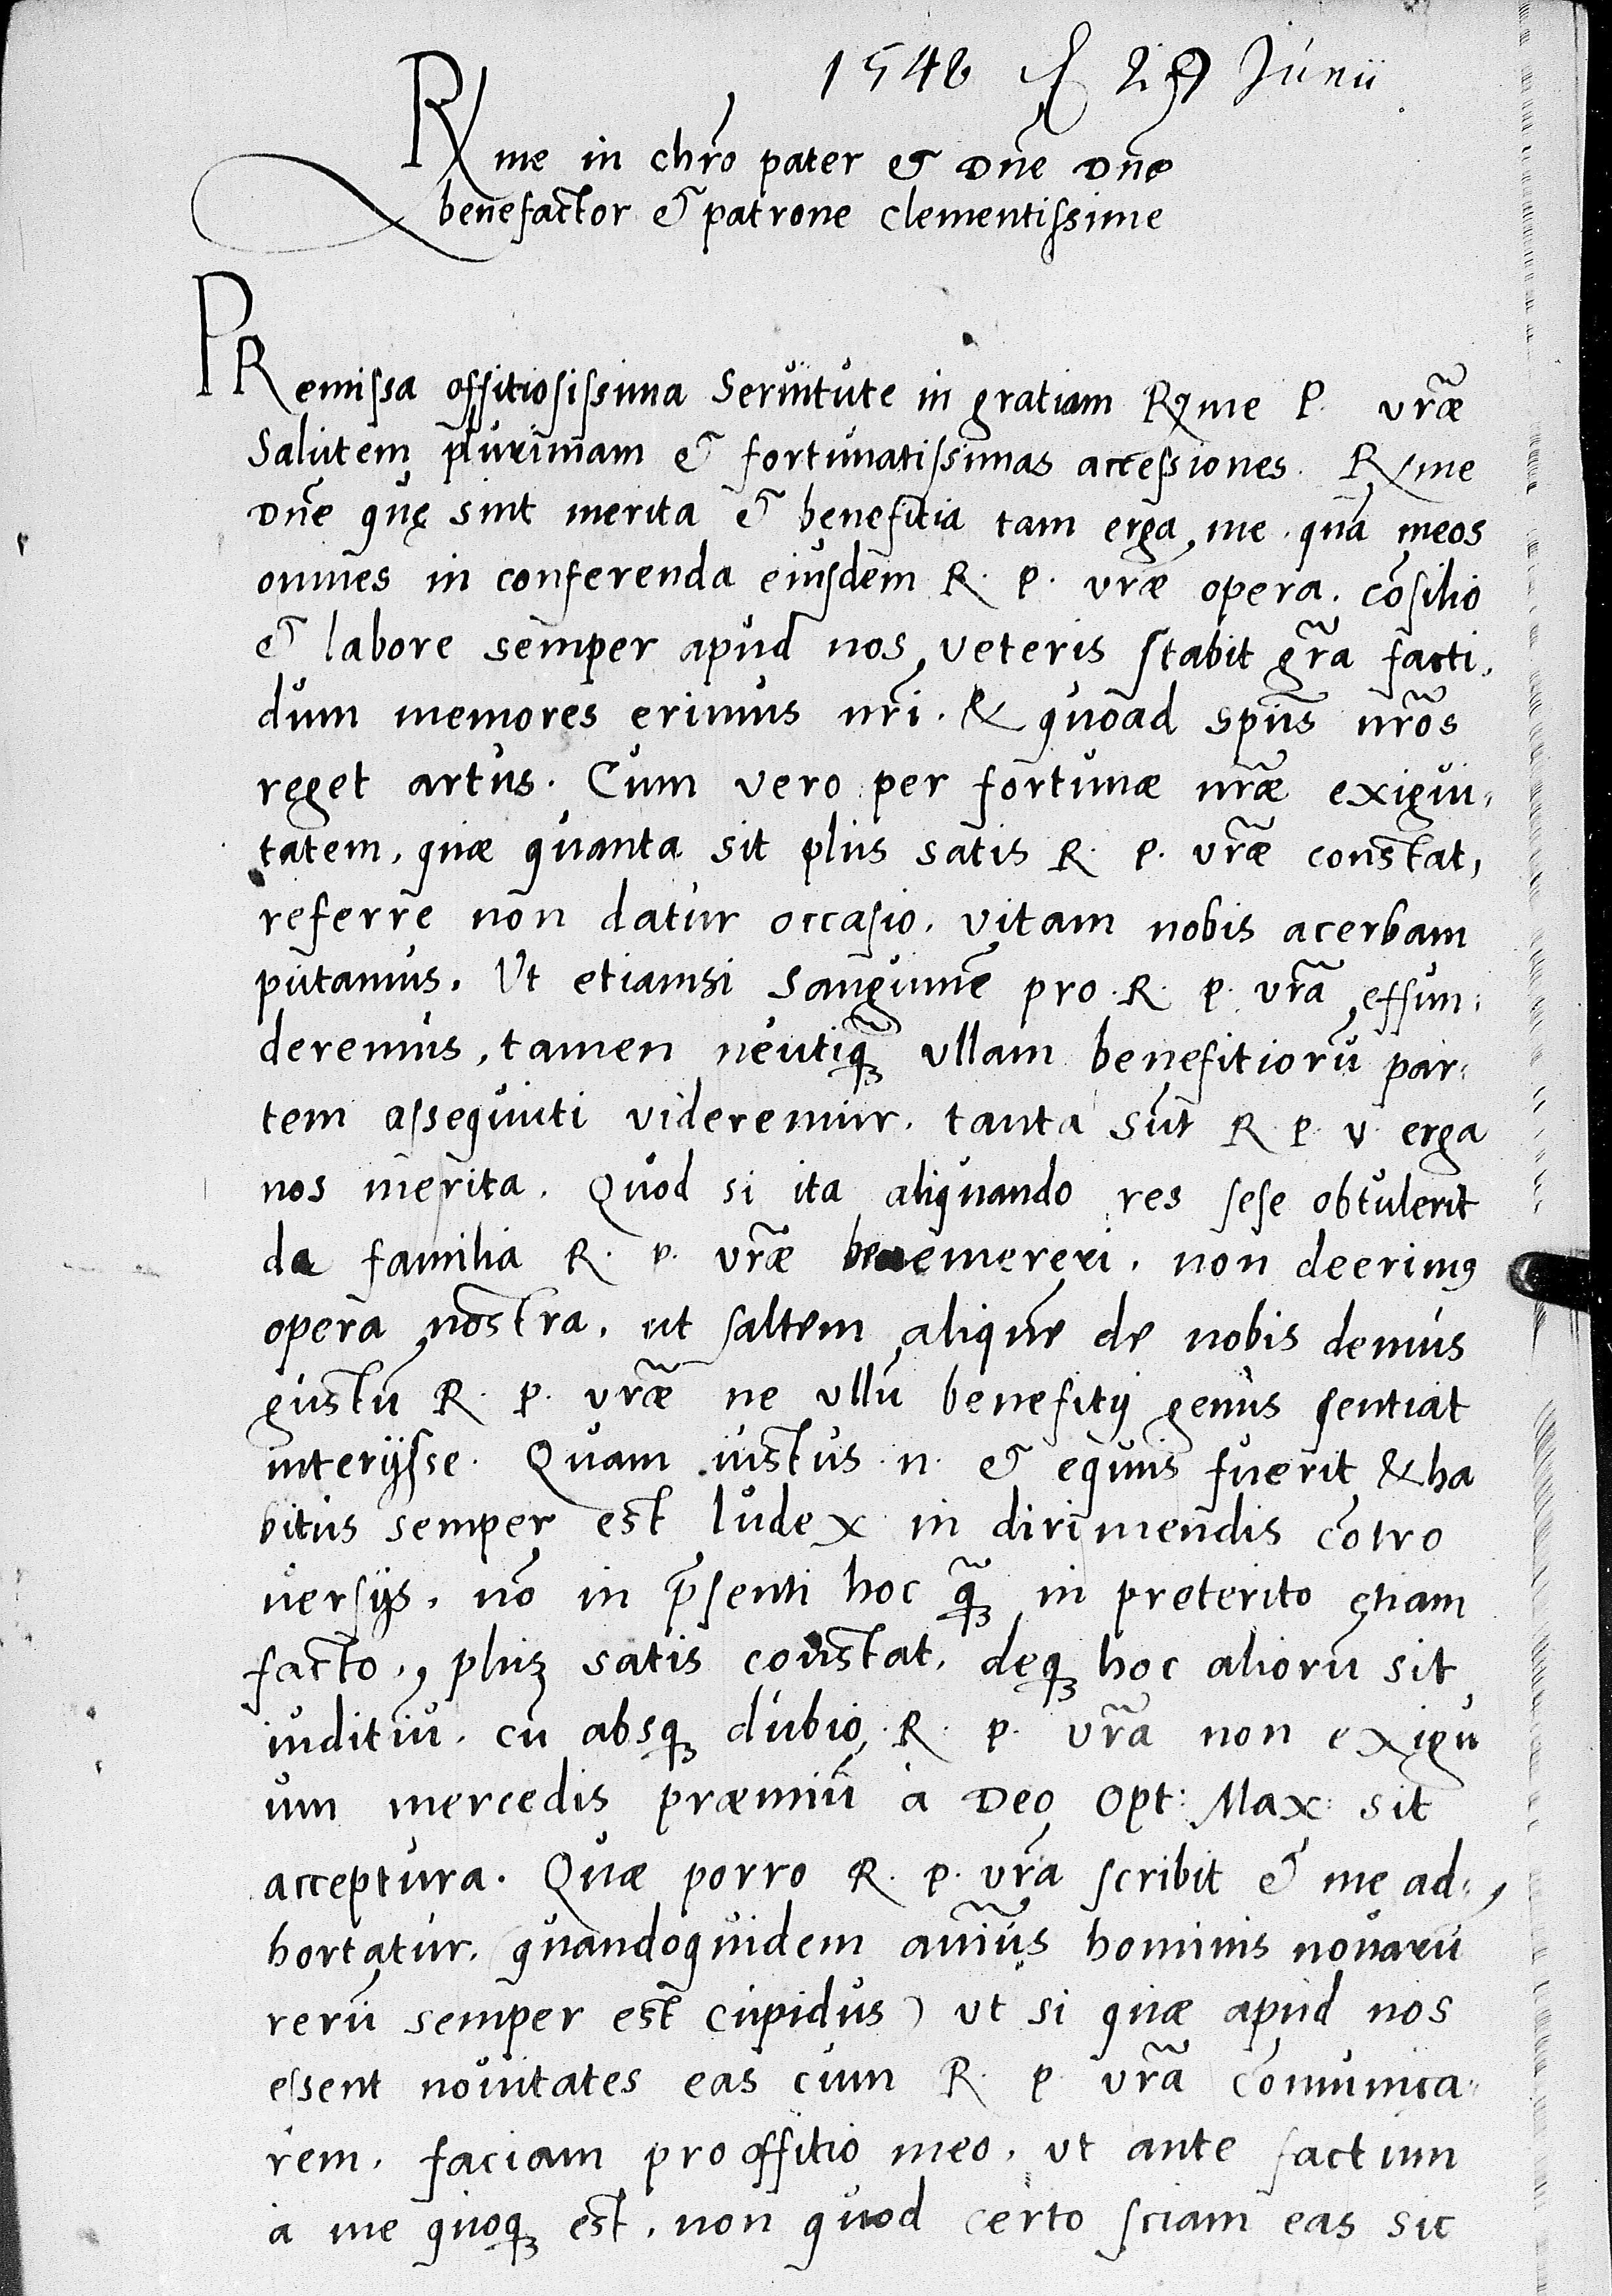 1546 29 Junii
Rme in chro pater et Dne Dne
benefactor et patrone clementissime
PRemissa offitiosissima Servitute in gratiam Rme P. vrae
Salutem plurimam et fortunatissimas accessiones. Rme
Dne quę sint merita et benefitia tam erga me. quā meos
omnes in conferenda eiusdem R. p. vrae opera. cōsilio
et labore semper apud nos veteris stabit gra facti.
dum memores erimus nri. & quoad spūs nros
reget artus. Cum vero per fortunae nrae exigui-
tatem, quae quanta sit plus satis R. p. vrae constat,
referre non datur occasio. vitam nobis acerbam
putamus. Ut etiamsi Sanguinē pro R. p. vra effun-
deremus, tamen neutiq̃ȝ ullam benefitiorū par-
tem assequuti videremur. tanta sūt R. p. v. erga
nos merita. Quod si ita aliquando res sese obtulerit
da familia R. p. vrae benemereri. non deerimus
opera nostra. ut saltem aliquē de nobis demus
gustū R. p. vrae ne ullū benefitij genus sentiat
interijsse. Quam iustus .n. et equus fuerit & ha
bitus semper est Iudex in dirimendis cōtro
versijs. nō in p̄senti hoc q̃ȝ in preterito etiam
facto., plus satis constat. deqȝ hoc aliorū sit
iuditiū. cū absqȝ dubio R. p. vra non exigu
um mercedis praemiū à Deo Opt: Max: sit
acceptura. Quae porro R. p. vra scribit et me ad-
hortatur. (quandoquidem anim̃us hominis novarū
rerū semper est cupidus) ut si quae apud nos
essent novitates eas cum R. p. vra cōmunica-
rem. faciam pro offitio meo. ut ante factum
à me quoqȝ est. non quod certo sciam eas sic